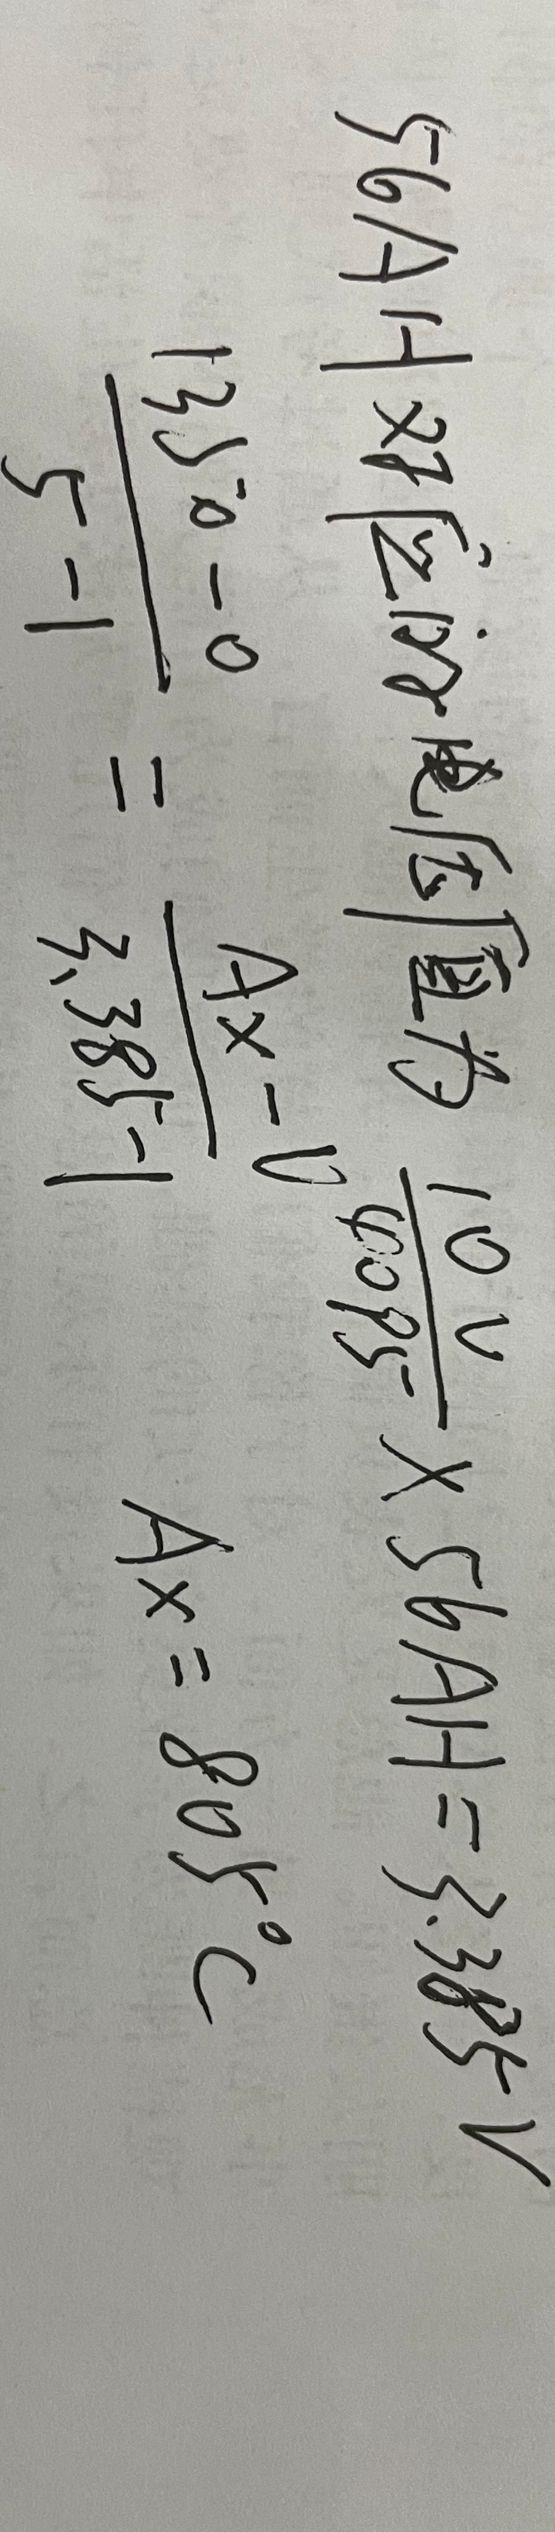 56AH对应的电压值为 10V/4095 × 56AH = 3.385V
1350-0/5-1 = Ax-0/3.385-1 Ax = 805°C